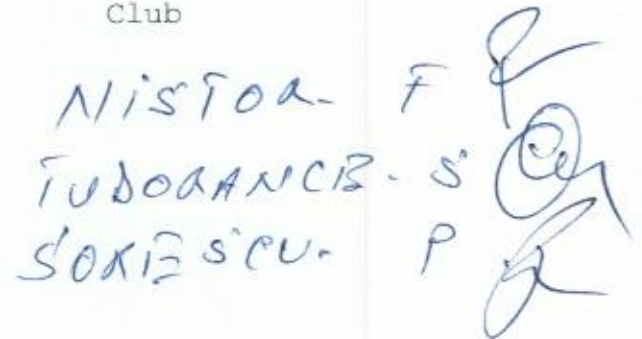 Club
NISTOR - F
TUDORANCE - S
SORESCU - P